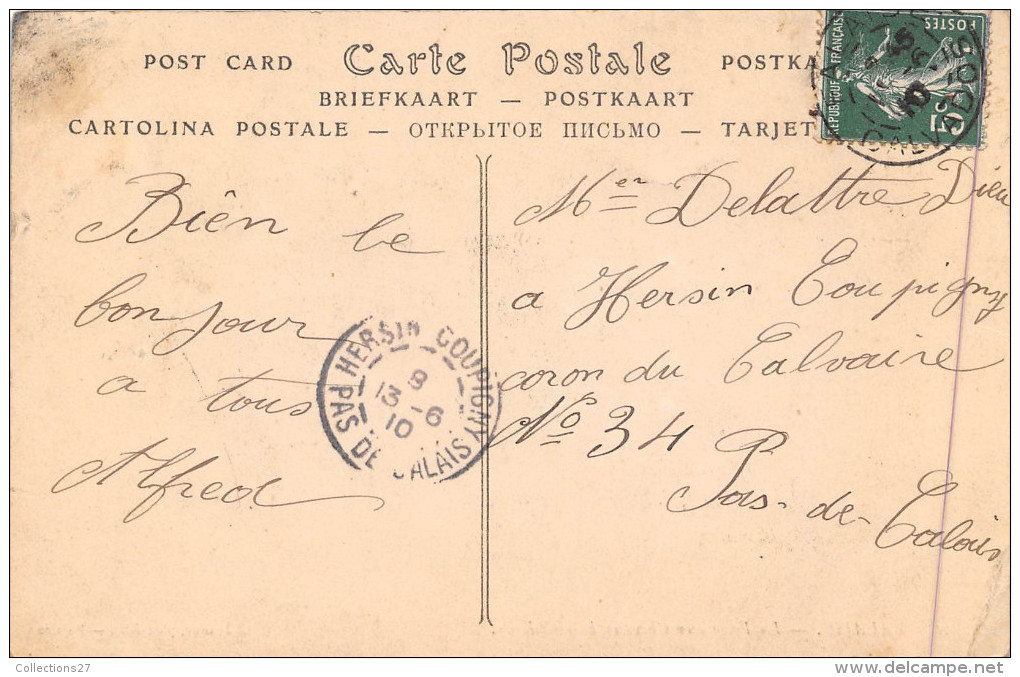 POST CARD Carte Postale POSTKA
BRIEFKAART — POSTKAART
CARTOLINA POSTALE — ОТКРЫТОЕ ПИСЬМО — TARJET
REPUBLIQUE FRANÇAISE
POSTES
5c
CALVADOS
Biên le
bon jour
a tous
Alfred
Mer Delattre Dieu
a Hersin Coupigny
coron du Calvaire
No 34
Pas-de-
Calais
HERSIN COUPIGNY
8
13-6
10
PAS DE CALAIS
Collections27
www.delcampe.net